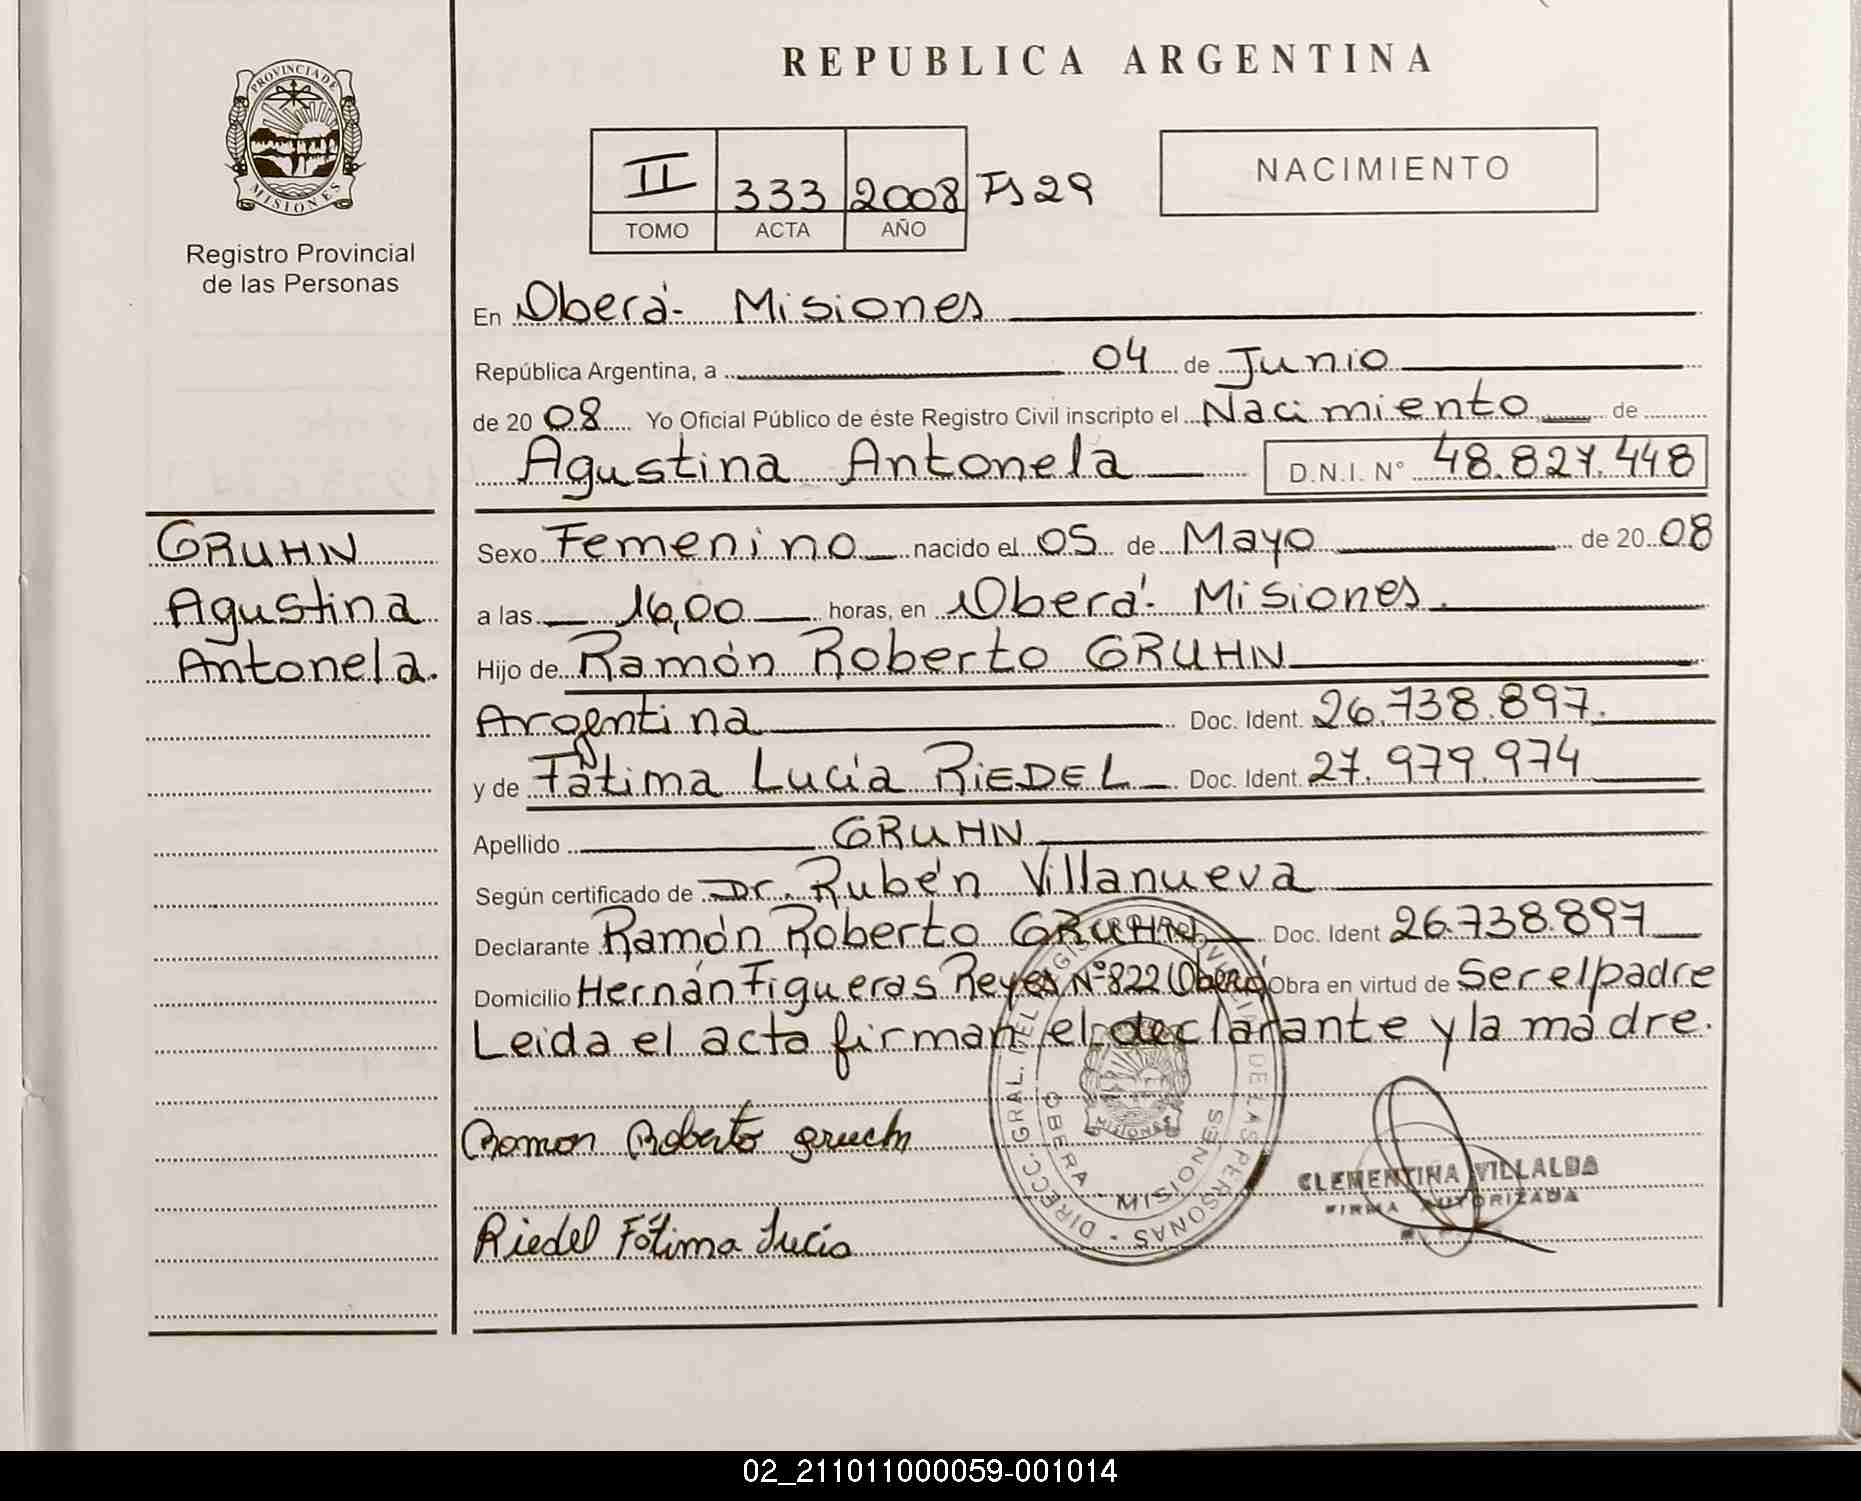 REPUBLICA ARGENTINA
PROVINCIA DE
MISIONES
Registro Provincial
de las Personas
II 333 2008 Fs 29
TOMO ACTA AÑO
NACIMIENTO
En Oberá- Misiones
República Argentina, a 04 de Junio
de 20 08 Yo Oficial Público de éste Registro Civil inscripto el Nacimiento de
Agustina Antonela D.N.I. N° 48.827.448
GRUHN
Agustina
Antonela.
Sexo Femenino nacido el 05 de Mayo de 20 08
a las 16,00 horas, en Oberá- Misiones.
Hijo de Ramón Roberto GRUHN
Argentina Doc. Ident. 26.738.897.
y de Fátima Lucía RiEDEL Doc. Ident. 27.979.974
Apellido GRUHN
Según certificado de Dr. Rubén Villanueva
Declarante Ramón Roberto GRUHN Doc. Ident 26.738.897
Domicilio Hernán Figueras Reyes N°822 Oberá Obra en virtud de Ser el padre
Leida el acta firman el declarante y la madre.
Ramon Roberto gruehn
Riedel Fátima Lucía
DIRECC. GRAL. DEL REGISTRO PROVINCIAL DE LAS PERSONAS - OBERA - MISIONES
MISIONES
CLEMENTINA VILLALBA
FIRMA AUTORIZADA
02_211011000059-001014